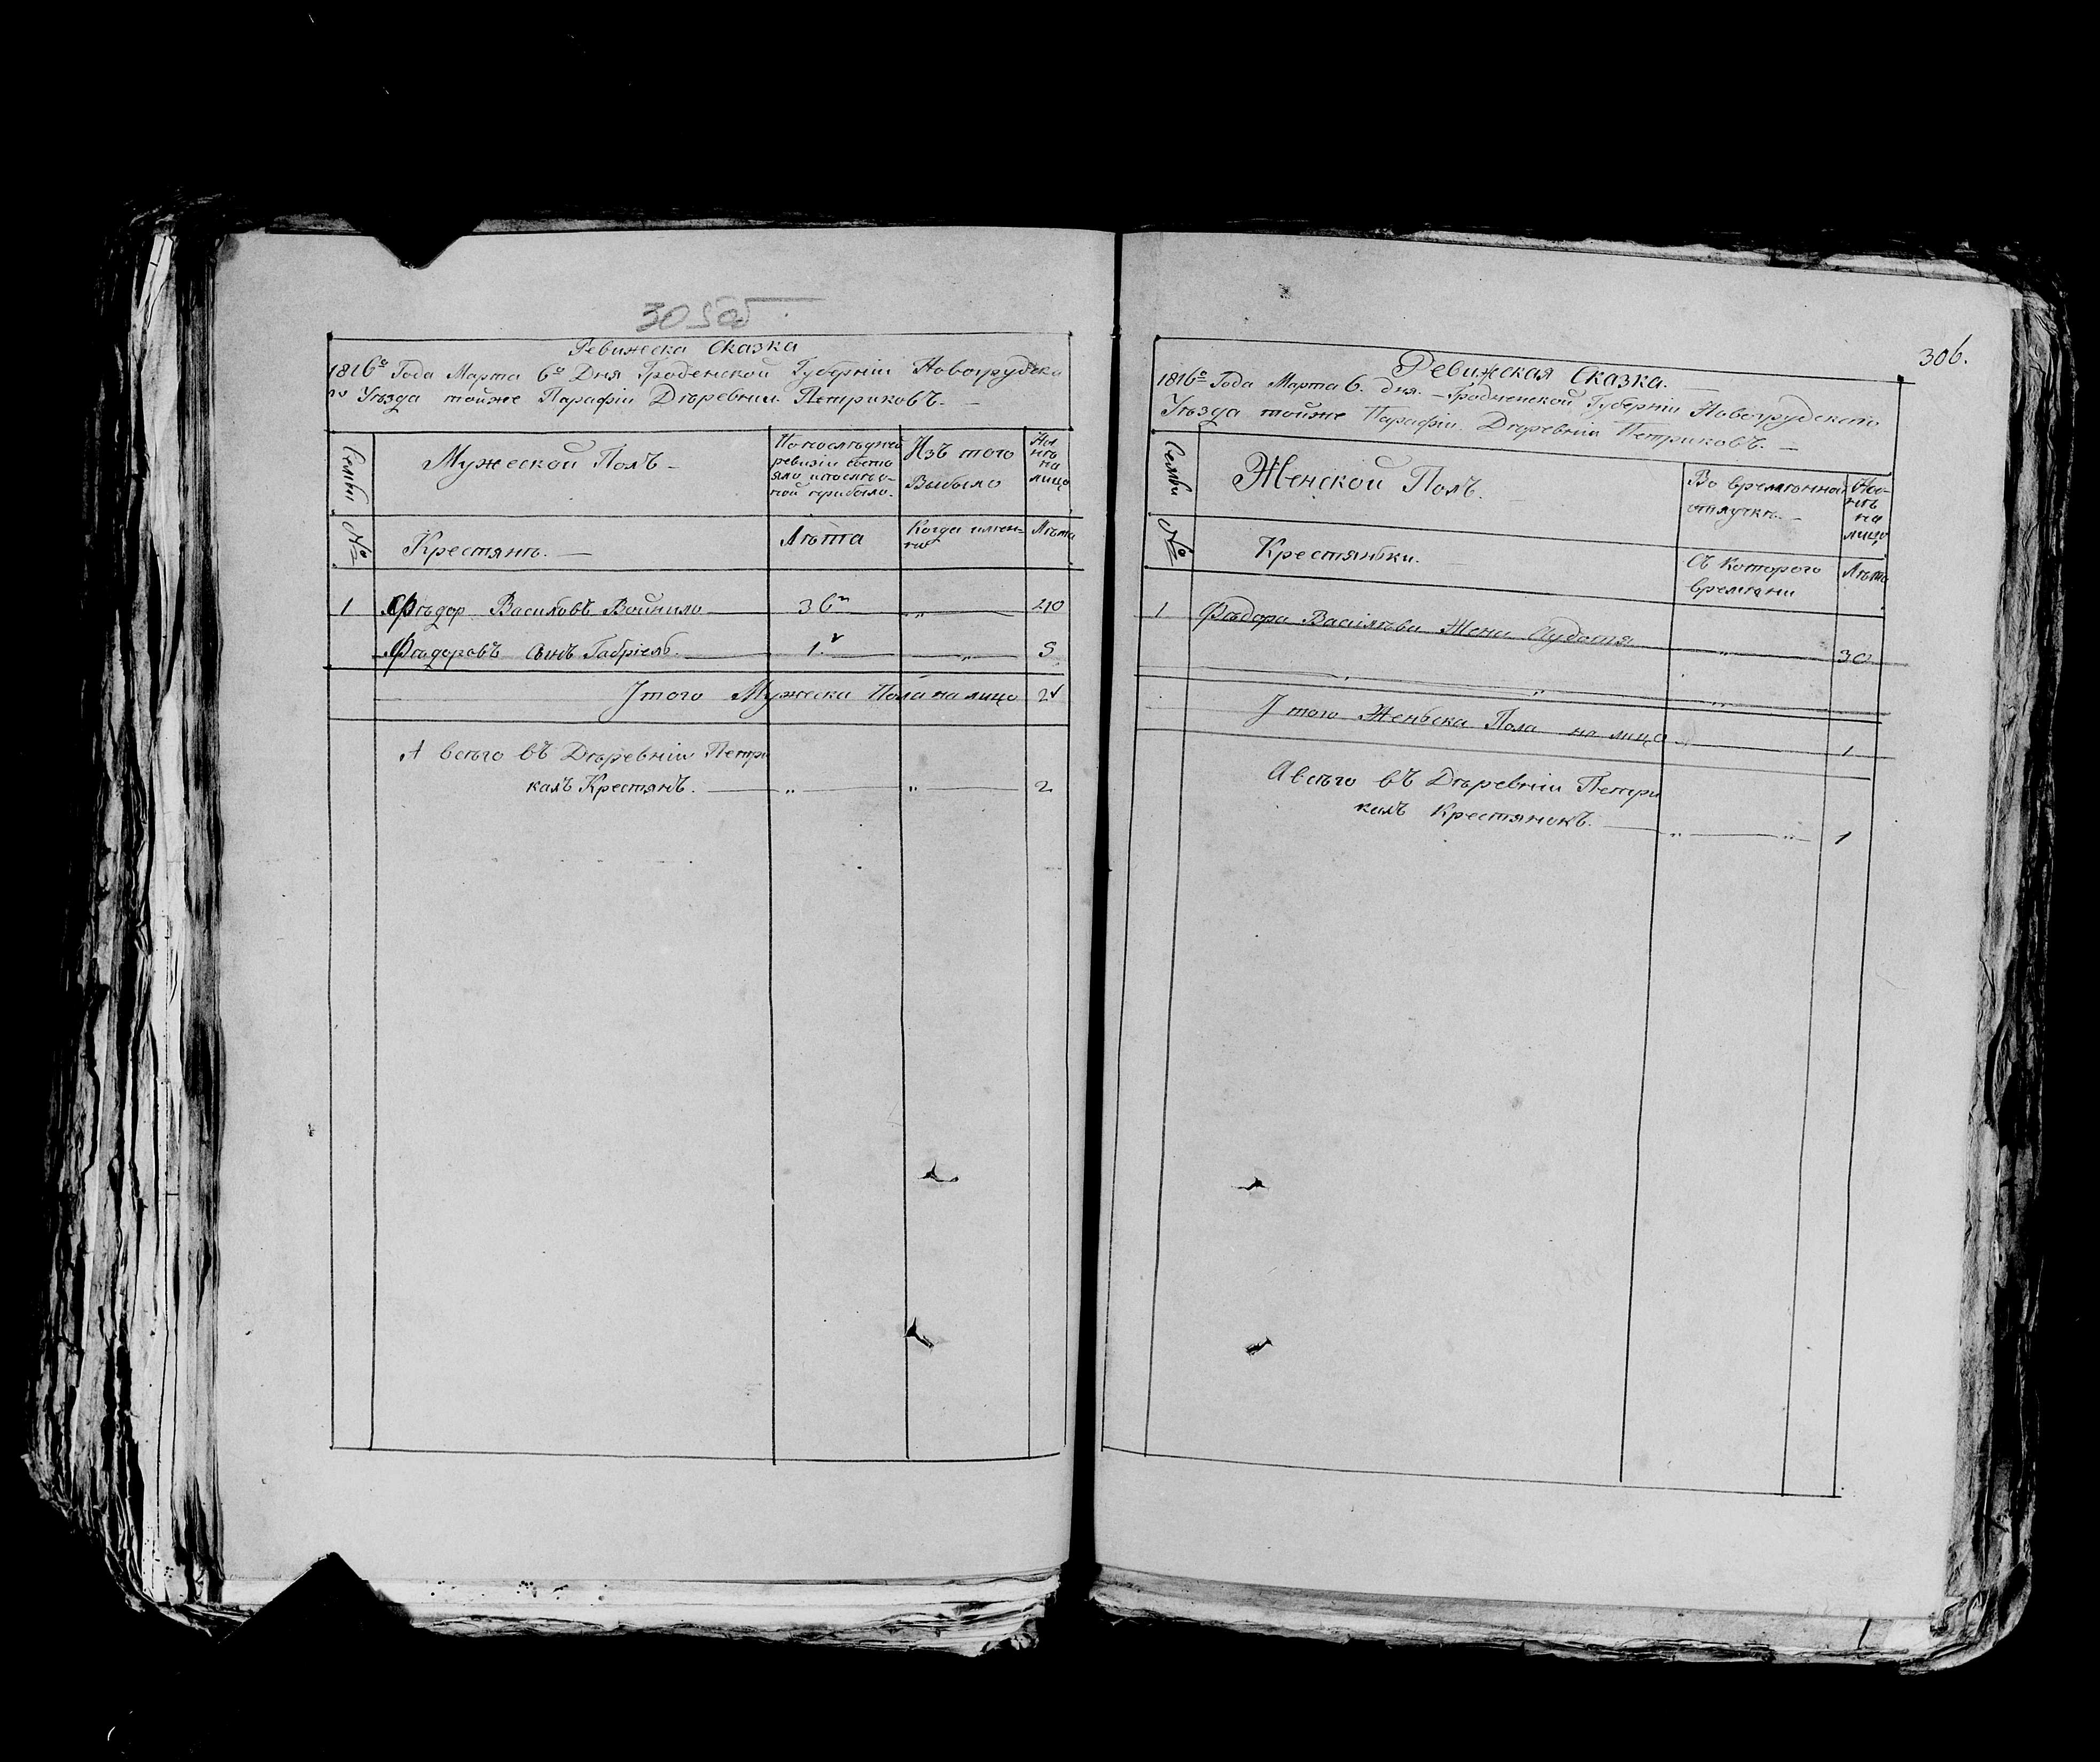 305об.
Ревижска Сказка
1816го Года Марта 6го Дня Гроденской Губерніи Новогрудска
го Уѣзда тойже Парафіи Дѣревніи Петриковъ. —
Семьи
Мужеской Полъ —
По послѣдней
ревизіи состо
яло и послѣ о-
ной прибыло.
Изъ того
Выбыло
Ны-
нѣ
на
лицо
№
Крестянѣ. —
Лѣта
Когда имен-
но
Лѣта
1 Фѣдор Васильовъ Войнило 36 „ 40
Фѣдоровъ Сынъ Габріель. 1. „ 5
Jтого Мужеска Пола на лицо 2
А всѣго въ Дѣревніи Петри
кахъ Крестянъ. — „ — „ — 2
306.
Ревижская Сказка. —
1816го Года Марта 6. дня. — Гродненской Губерніи Новогрудского
Уѣзда тойже Парафіи Дѣревніи Петриковъ. —
Семьи
Женской Полъ.
Во врѣмѣнной
отлучкѣ. —
Ны-
нѣ
на
лицо
№
Крестянки. —
Съ Которого
врѣмѣни
Лѣта
1 Фѣдора Васілѣва Жена Аудотя „ 30
„ „ „
Jтого Женьска Пола на лицо 1
А всѣго въ Дѣревніи Петри
кахъ Крестянокъ. — „ — „ — 1